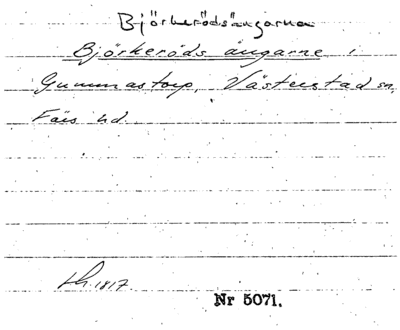 Björkerödsängarna
Björkeröds ängarne i
Gummastorp, Västerstad sn,
Färs hd.
1817
Nr 5071.